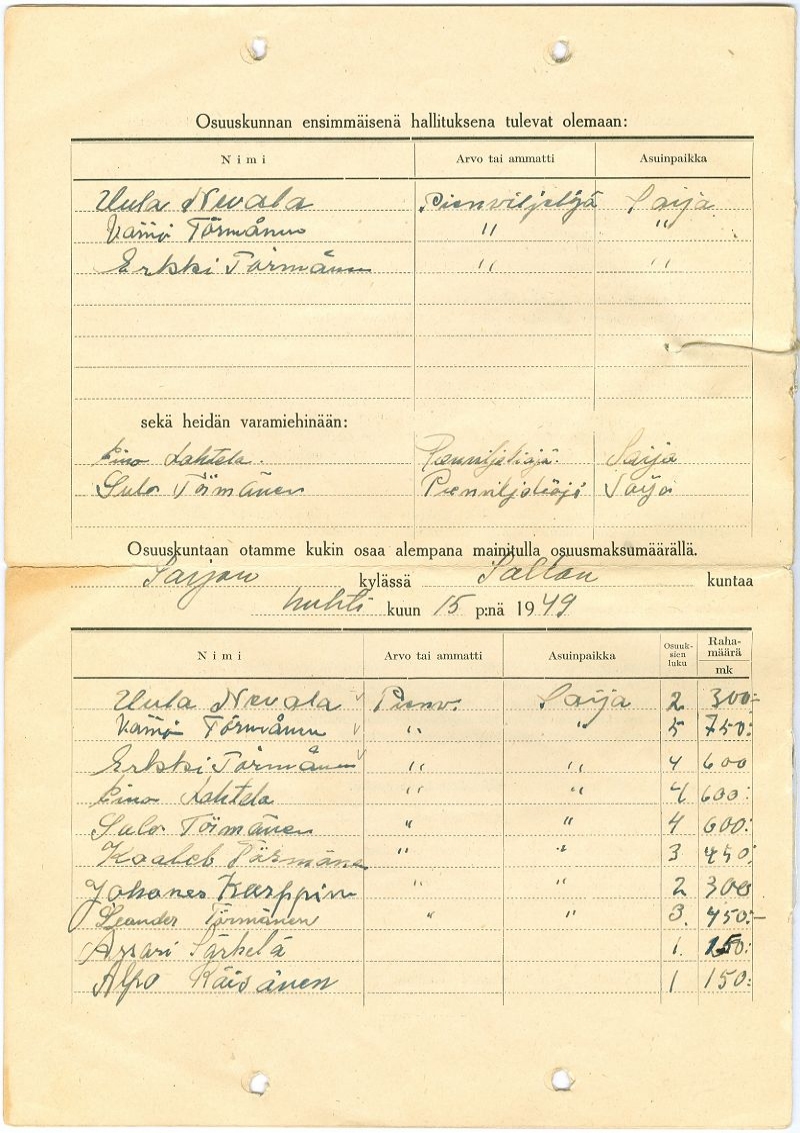 Osuuskunnan ensimmäisenä hallituksena tulevat olemaan:
Nimi Arvo tai ammatti Asuinpaikka
Uula Nevala Pienviljelijä Saija
Väinö Törmänen " "
Erkki Törmänen " "
sekä heidän varamiehinään:
Eino Lahtela. Pienviljelijä. Saija
Sulo Törmänen Pienviljelijä Saija
Osuuskuntaan otamme kukin osaa alempana mainitulla osuusmaksumäärällä.
Saijan kylässä Sallan kuntaa
huhti kuun 15 p:nä 1949
Nimi Arvo tai ammatti Asuinpaikka Osuuk-sien luku Raha-määrä mk
Uula Nevala Pienv. Saija 2 300:-
Väinö Törmänen " " 5 750:
Erkki Törmänen " " 4 600
Eino Lahtela " " 4 600:
Sulo Törmänen " " 4 600:
Kaaleb Törmänen " " 3 450:
Johanes Karppin " " 2 300
Leander Törmänen " " 3. 450:-
Assari Särkelä 1. 150:
Alpo Räisänen 1 150: